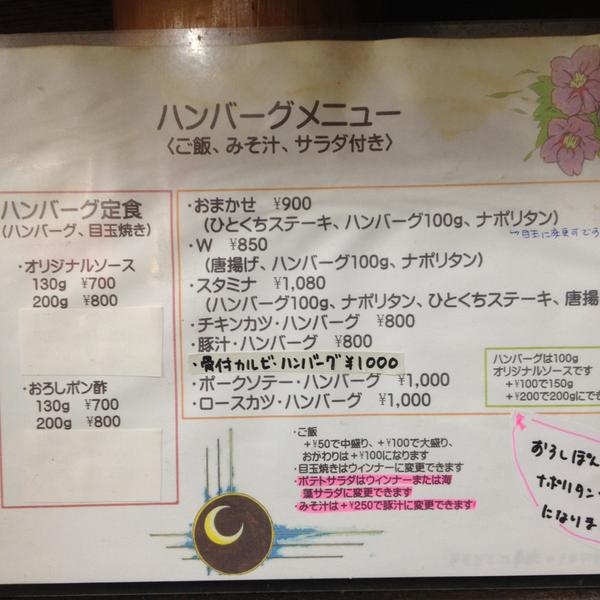 ハンバーグメニュー
〈ご飯、みそ汁、サラダ付き〉
ハンバーグ定食
(ハンバーグ、目玉焼き)
・オリジナルソース
130g ¥700
200g ¥800
・おろしポン酢
130g ¥700
200g ¥800
・おまかせ ¥900
(ひとくちステーキ、ハンバーグ100g、ナポリタン)
・W ¥850
(唐揚げ、ハンバーグ100g、ナポリタン)
・スタミナ ¥1,080
(ハンバーグ100g、ナポリタン、ひとくちステーキ、唐揚
・チキンカツ・ハンバーグ ¥800
・豚汁・ハンバーグ ¥800
・骨付カルビ・ハンバーグ ¥1000
・ポークソテー・ハンバーグ ¥1,000
・ロースカツ・ハンバーグ ¥1,000
ハンバーグは100g
オリジナルソースです
+¥100で150g
+¥200で200gにでき
・ご飯
+¥50で中盛り、+¥100で大盛り、
おかわりは+¥100になります
・目玉焼きはウィンナーに変更できます
・ポテトサラダはウィンナーまたは海
藻サラダに変更できます
・みそ汁は+¥250で豚汁に変更できます
おろしぽん
ナポリタン
になりま